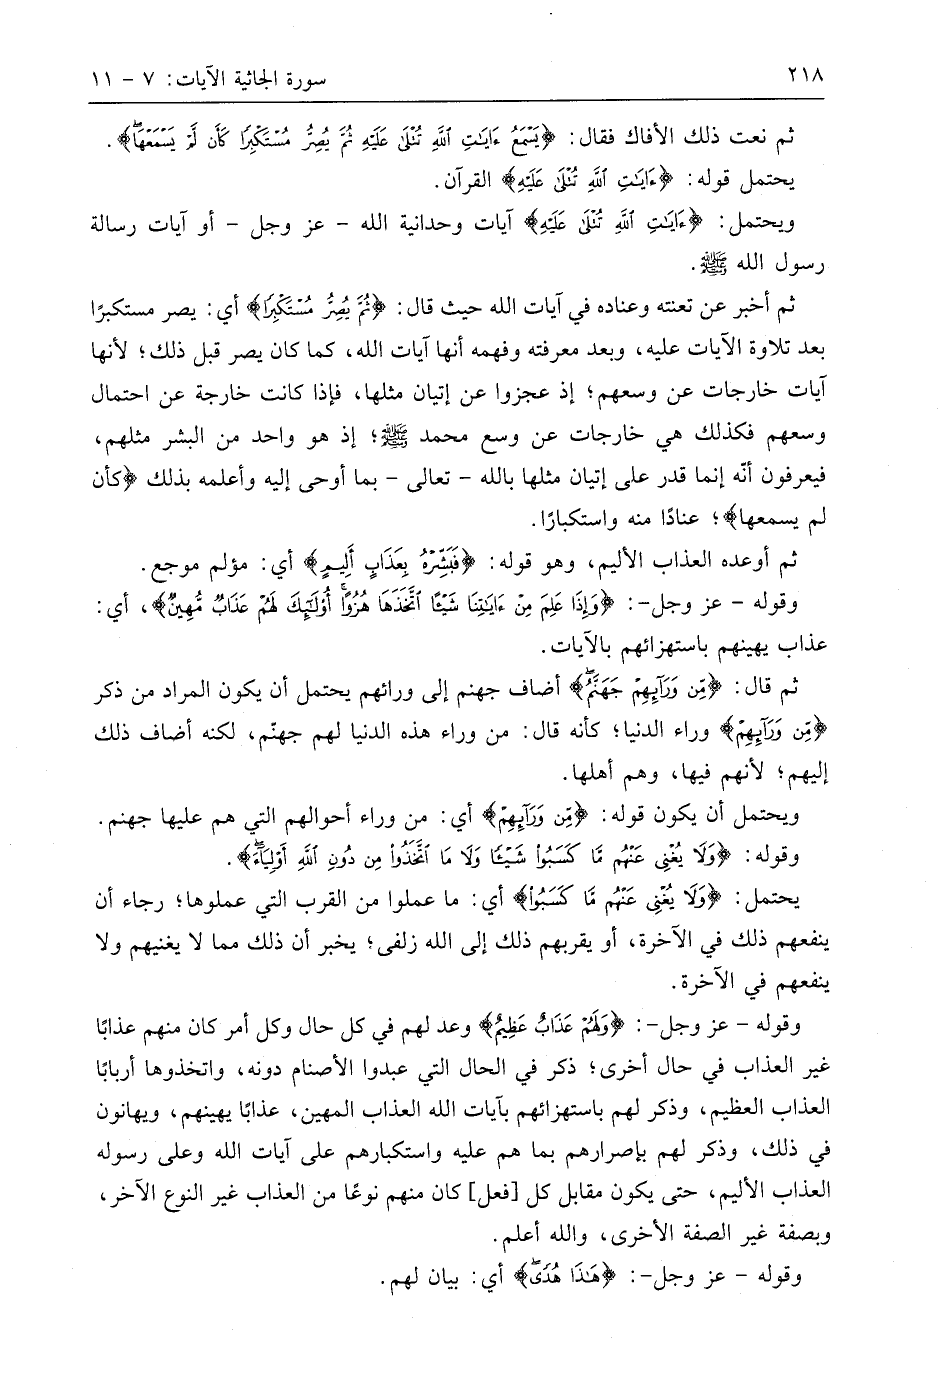 ٢١٨
سورة الجاثية الآيات: ٧ - ١١
ثم نعت ذلك الأفاك فقال: ﴿يَسْمَعُ ءَايَٰتِ ٱللَّهِ تُتْلَىٰ عَلَيْهِ ثُمَّ يُصِرُّ مُسْتَكْبِرًا كَأَن لَّمْ يَسْمَعْهَاۖ﴾.
يحتمل قوله: ﴿ءَايَٰتِ ٱللَّهِ تُتْلَىٰ عَلَيْهِ﴾ القرآن.
ويحتمل: ﴿ءَايَٰتِ ٱللَّهِ تُتْلَىٰ عَلَيْهِ﴾ آيات وحدانية الله - عز وجل - أو آيات رسالة
رسول الله ﷺ.
ثم أخبر عن تعنته وعناده في آيات الله حيث قال: ﴿ثُمَّ يُصِرُّ مُسْتَكْبِرًا﴾ أي: يصر مستكبرًا
بعد تلاوة الآيات عليه، وبعد معرفته وفهمه أنها آيات الله، كما كان يصر قبل ذلك؛ لأنها
آيات خارجات عن وسعهم؛ إذ عجزوا عن إتيان مثلها، فإذا كانت خارجة عن احتمال
وسعهم فكذلك هي خارجات عن وسع محمد ﷺ؛ إذ هو واحد من البشر مثلهم،
فيعرفون أنّه إنما قدر على إتيان مثلها بالله - تعالى - بما أوحى إليه وأعلمه بذلك ﴿كأن
لم يسمعها﴾؛ عنادًا منه واستكبارًا.
ثم أوعده العذاب الأليم، وهو قوله: ﴿فَبَشِّرْهُ بِعَذَابٍ أَلِيمٍ﴾ أي: مؤلم موجع.
وقوله - عز وجل-: ﴿وَإِذَا عَلِمَ مِنْ ءَايَٰتِنَا شَيْئًا ٱتَّخَذَهَا هُزُوًاۚ أُو۟لَٰٓئِكَ لَهُمْ عَذَابٌ مُّهِينٌ﴾، أي:
عذاب يهينهم باستهزائهم بالآيات.
ثم قال: ﴿مِّن وَرَآئِهِمْ جَهَنَّمُۖ﴾ أضاف جهنم إلى ورائهم يحتمل أن يكون المراد من ذكر
﴿مِّن وَرَآئِهِمْ﴾ وراء الدنيا؛ كأنه قال: من وراء هذه الدنيا لهم جهنّم، لكنه أضاف ذلك
إليهم؛ لأنهم فيها، وهم أهلها.
ويحتمل أن يكون قوله: ﴿مِّن وَرَآئِهِمْ﴾ أي: من وراء أحوالهم التي هم عليها جهنم.
وقوله: ﴿وَلَا يُغْنِى عَنْهُم مَّا كَسَبُوا۟ شَيْـًٔا وَلَا مَا ٱتَّخَذُوا۟ مِن دُونِ ٱللَّهِ أَوْلِيَآءَۖ﴾.
يحتمل: ﴿وَلَا يُغْنِى عَنْهُم مَّا كَسَبُوا۟﴾ أي: ما عملوا من القرب التي عملوها؛ رجاء أن
ينفعهم ذلك في الآخرة، أو يقربهم ذلك إلى الله زلفى؛ يخبر أن ذلك مما لا يغنيهم ولا
ينفعهم في الآخرة.
وقوله - عز وجل-: ﴿وَلَهُمْ عَذَابٌ عَظِيمٌ﴾ وعد لهم في كل حال وكل أمر كان منهم عذابًا
غير العذاب في حال أخرى؛ ذكر في الحال التي عبدوا الأصنام دونه، واتخذوها أربابًا
العذاب العظيم، وذكر لهم باستهزائهم بآيات الله العذاب المهين، عذابًا يهينهم، ويهانون
في ذلك، وذكر لهم بإصرارهم بما هم عليه واستكبارهم على آيات الله وعلى رسوله
العذاب الأليم، حتى يكون مقابل كل [فعل] كان منهم نوعًا من العذاب غير النوع الآخر،
وبصفة غير الصفة الأخرى، والله أعلم.
وقوله - عز وجل-: ﴿هَٰذَا هُدًىۖ﴾ أي: بيان لهم.